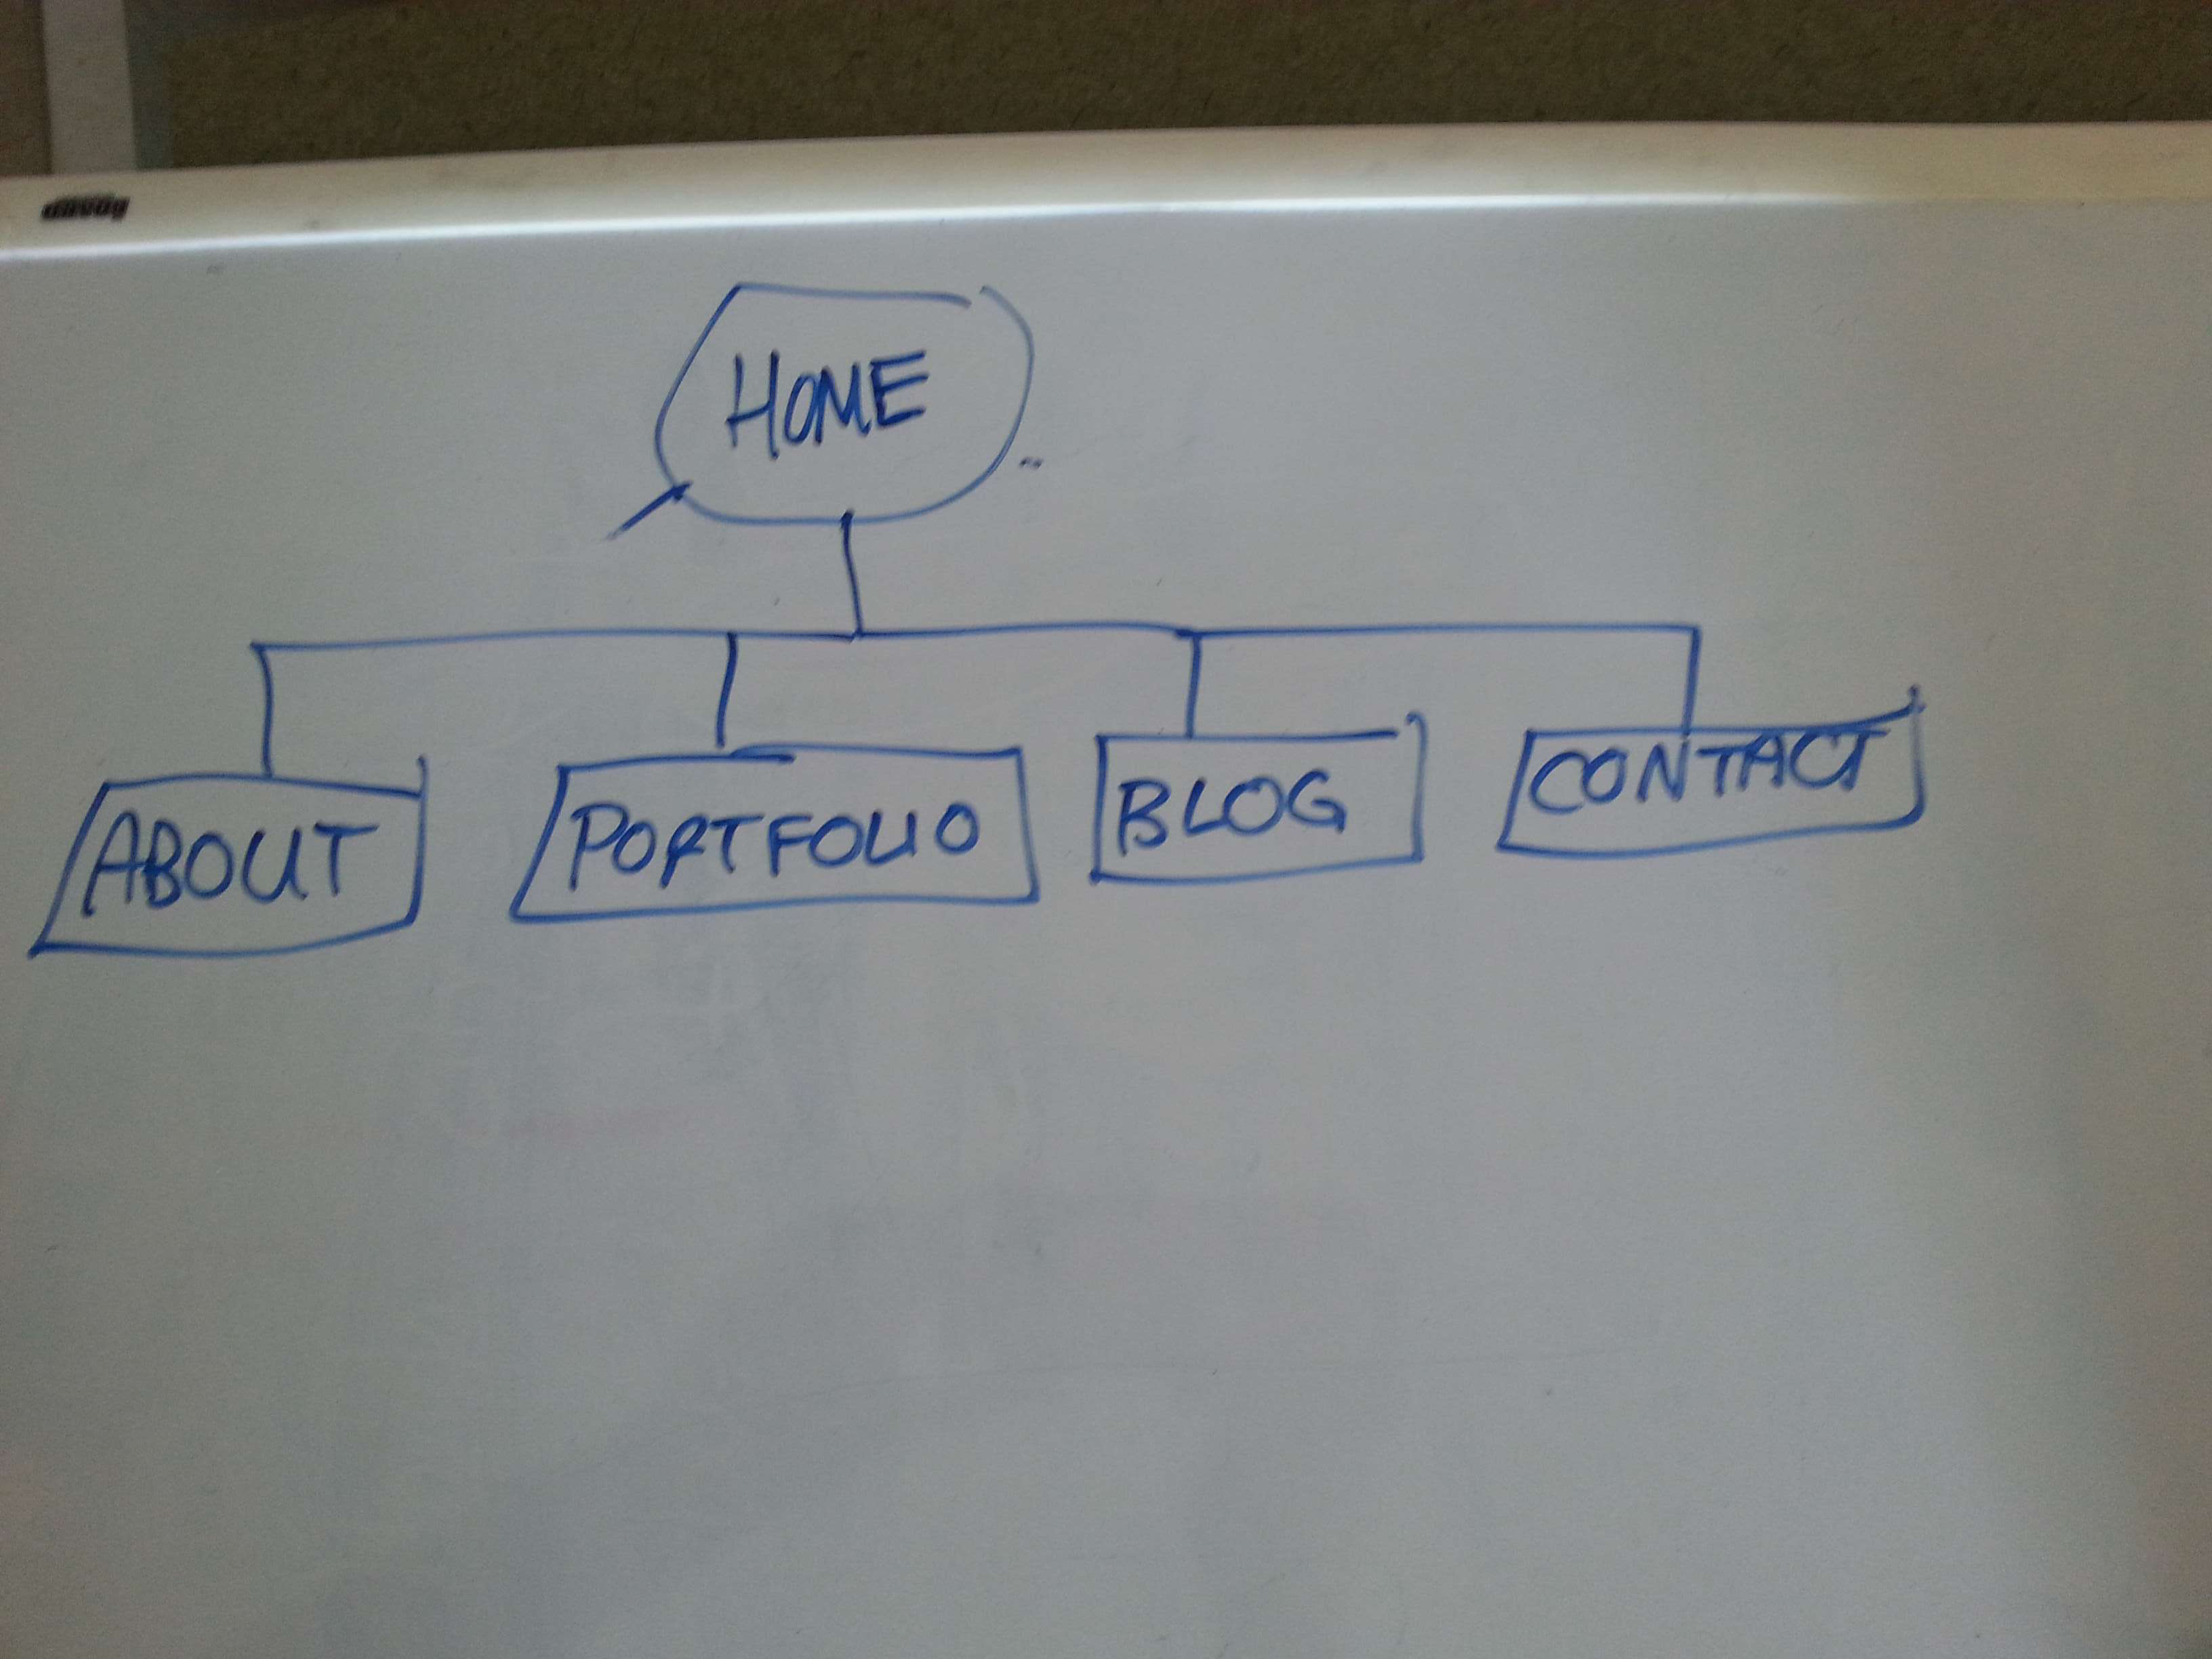 HOME
ABOUT
PORTFOLIO
BLOG
CONTACT